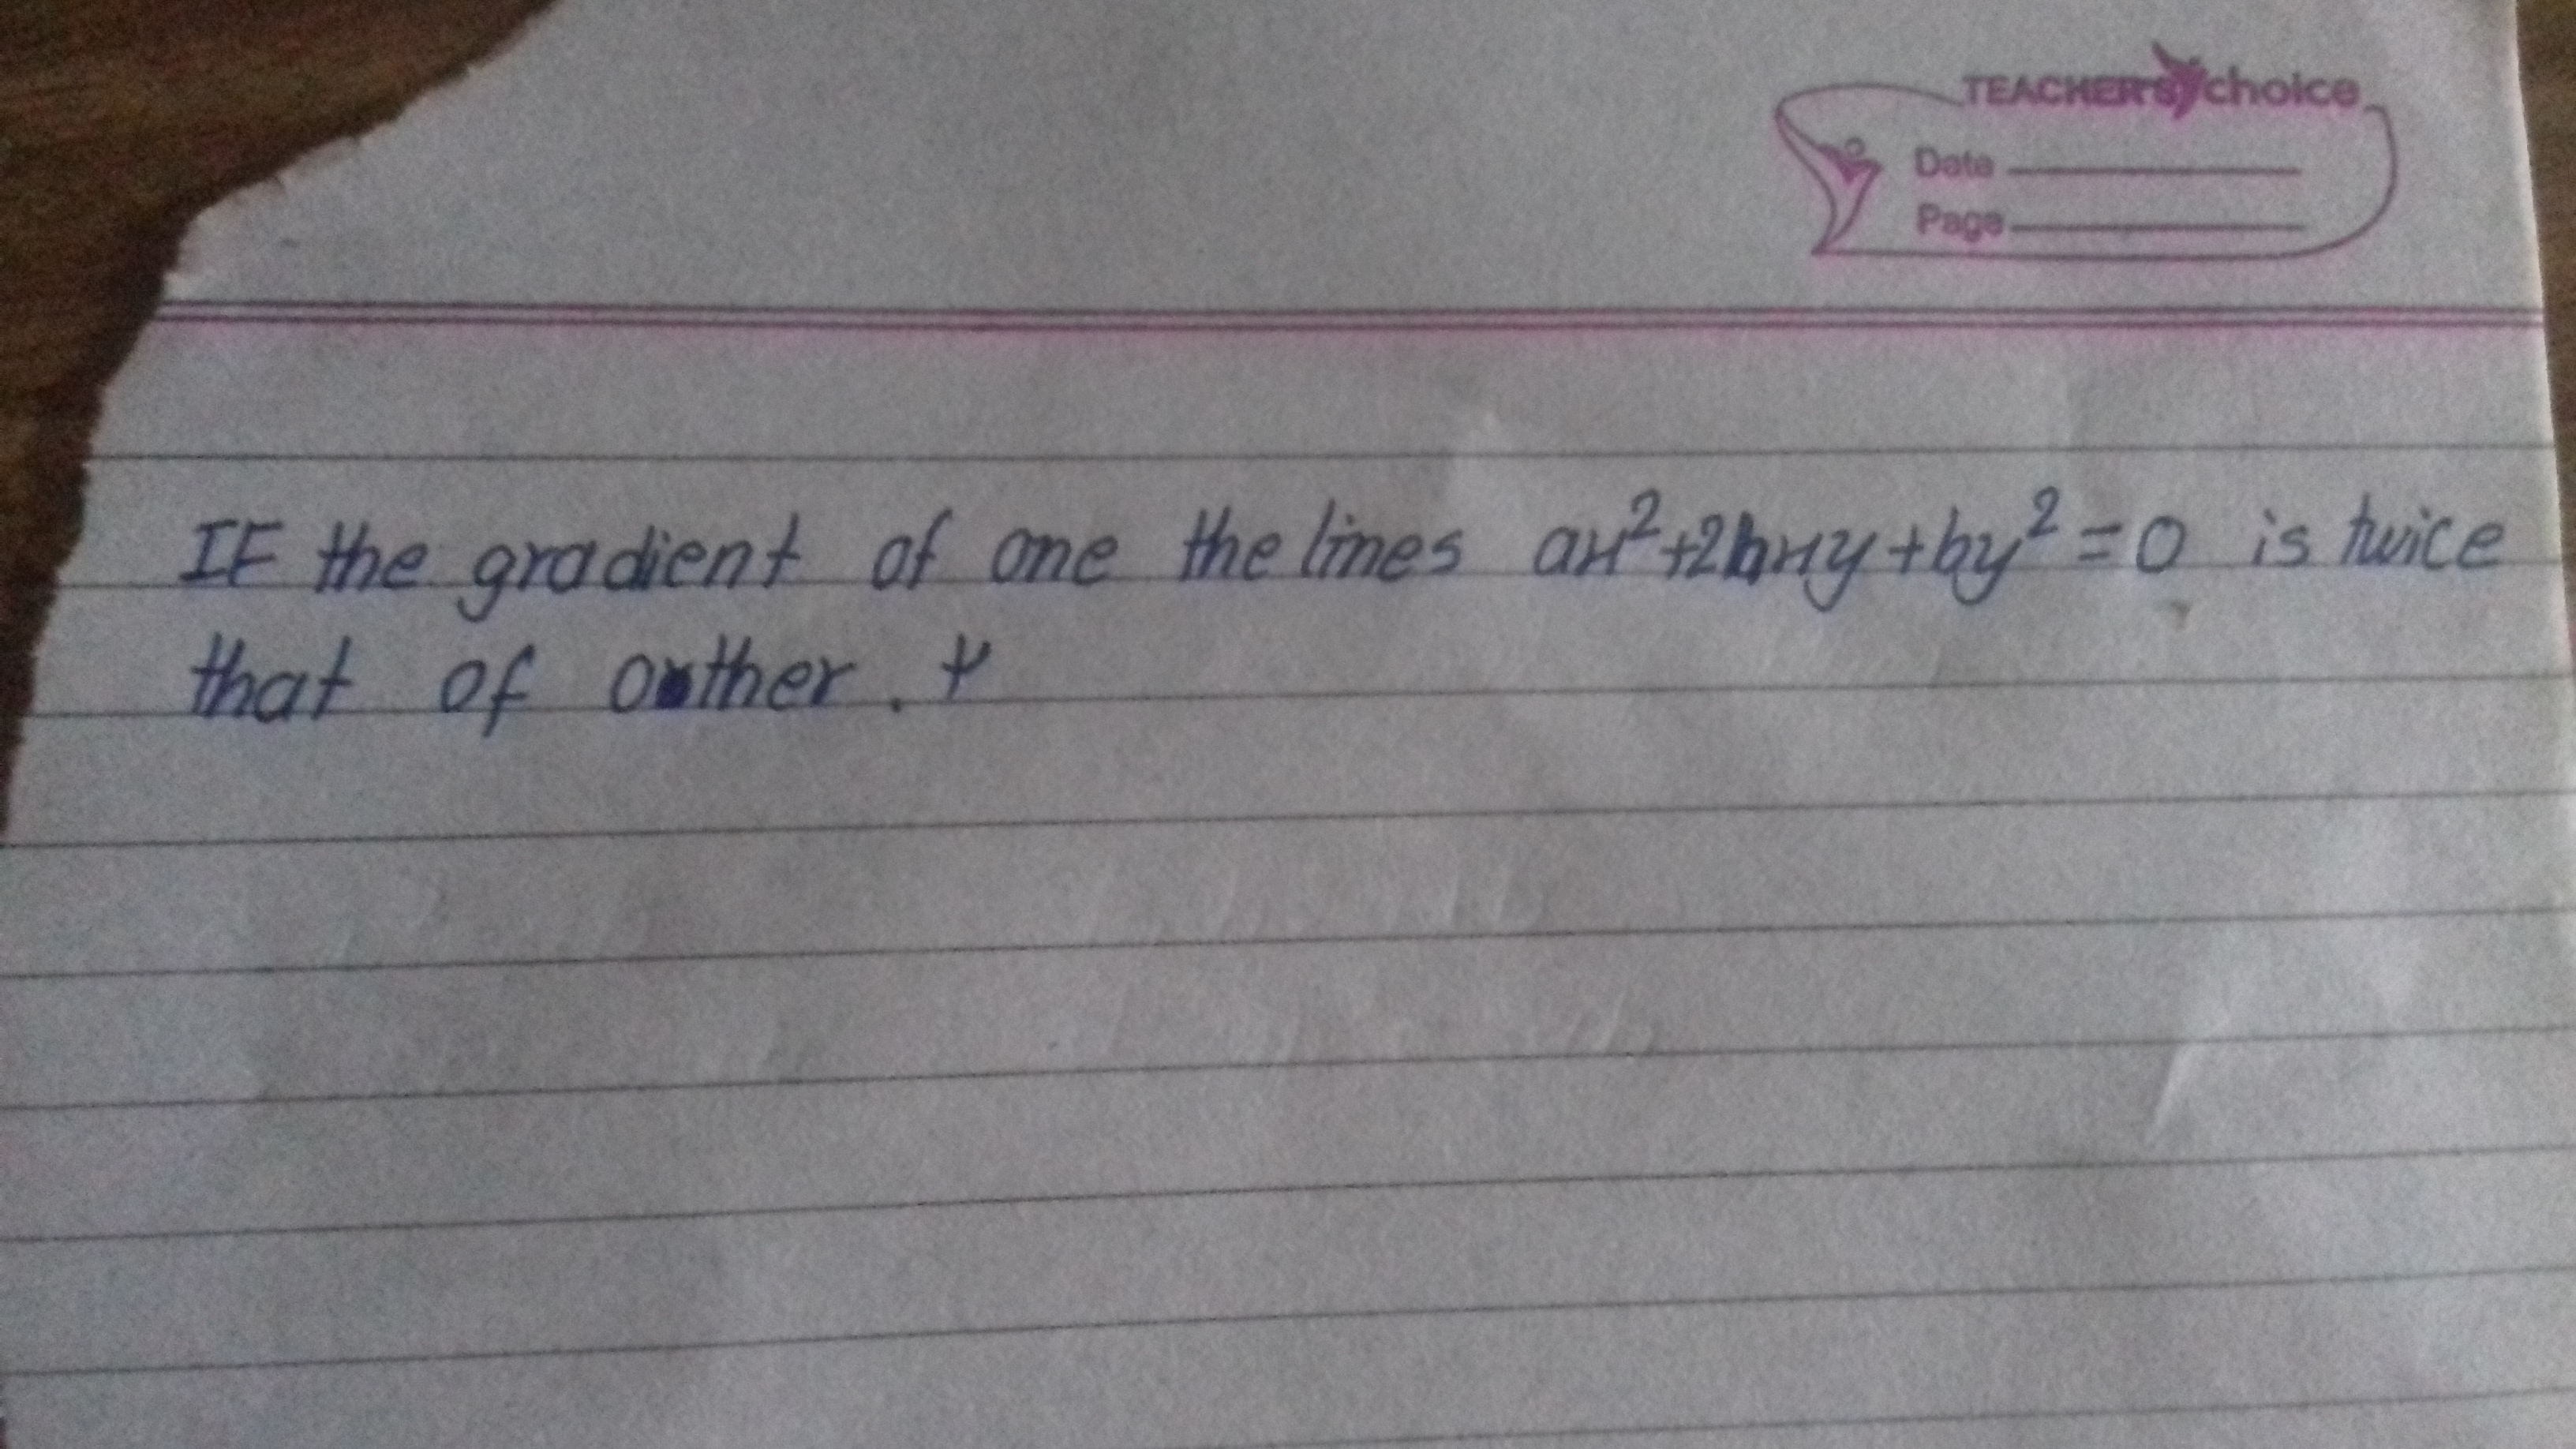 TEACHER'S choice
Date
Page
IF the gradient of one the lines ax²+2hxy+by²=0 is twice
that of other.